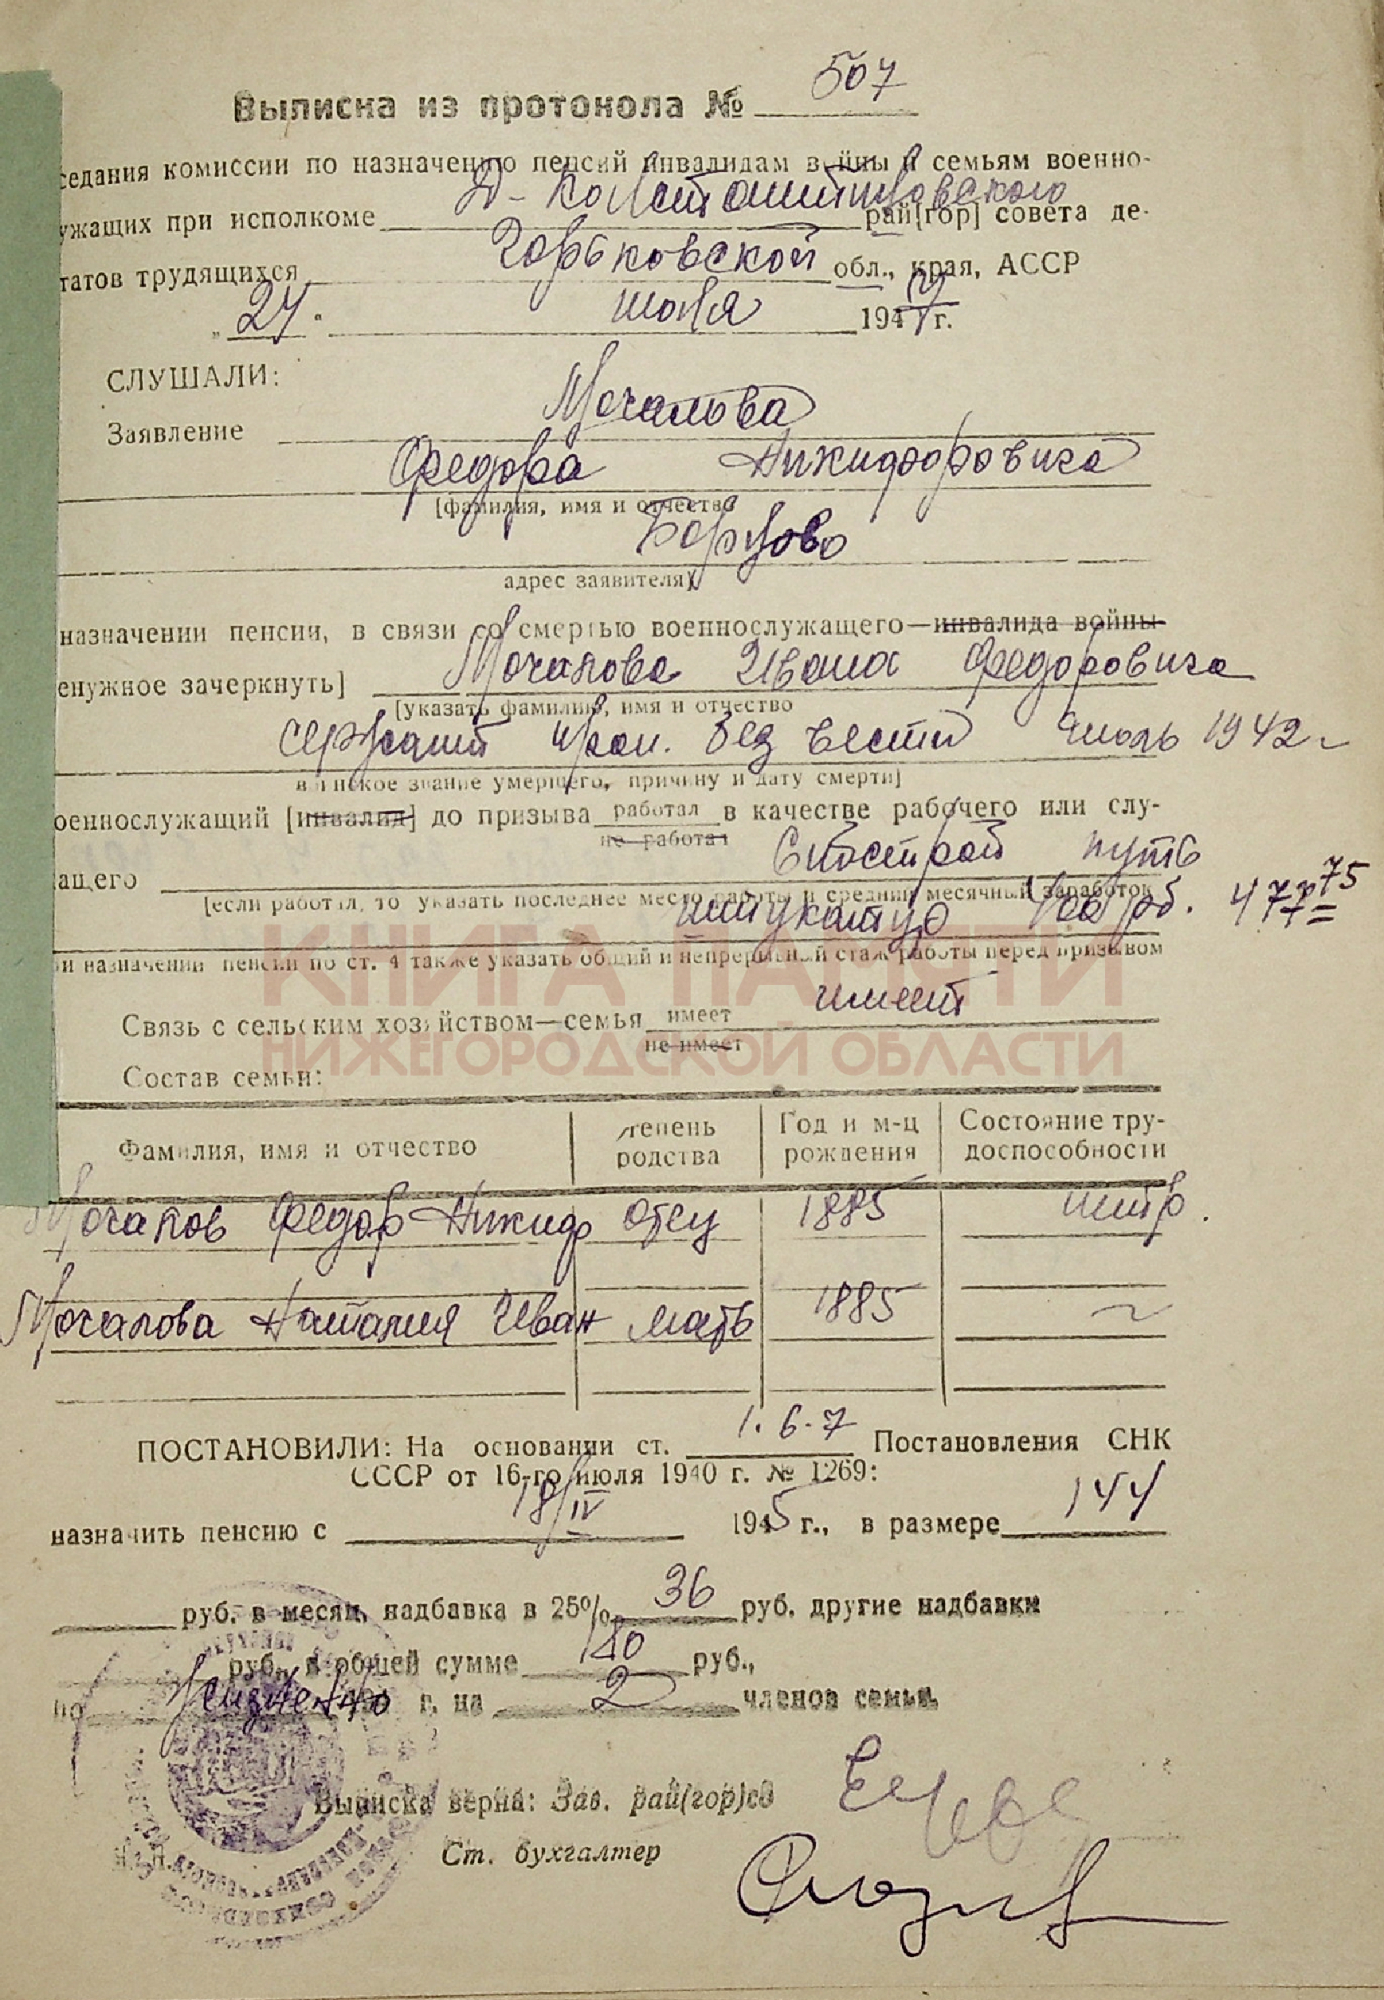 Выписка из протокола № 507
седания комиссии по назначению пенсий инвалидам войны и семьям военно-
ужащих при исполкоме Д-Константиновского рай[гор] совета де-
татов трудящихся Горьковской обл., края, АССР
„ 24 " июля 1947 г.
СЛУШАЛИ:
Заявление Мочалова
Федора Никифоровича
[фамилия, имя и отчество
Борцово
адрес заявителя)
назначении пенсии, в связи со смертью военнослужащего—инвалида войны
енужное зачеркнуть] Мочалова Ивана Федоровича
[указать фамилию, имя и отчество
сержант проп. без вести Июль 1942 г
воинское звание умершего, причину и дату смерти]
оеннослужащий [инвалид] до призыва работал в качестве рабочего или слу-
не работал
ащего путь
[если работал, то указать последнее место работы и средний месячный заработок
штукатур 477р 75
ри назначении пенсии по ст. 4 также указать общий и непрерывный стаж работы перед призывом
КНИГА ПАМЯТИ
НИЖЕГОРОДСКОЙ ОБЛАСТИ
Связь с сельским хозяйством—семья имеет имеет
не имеет
Состав семьи:
Фамилия, имя и отчество тепень родства Год и м-ц рождения Состояние тру-доспособности
Мочалов Федор Никиф отец 1885 нетр.
Мочалова Наталия Иван мать 1885 ~
ПОСТАНОВИЛИ: На основании ст. 1.6-7 Постановления СНК
СССР от 16-го июля 1940 г. № 1269:
назначить пенсию с 18/IV 1945 г., в размере 144
руб. в месяц, надбавка в 25% 36 руб. другие надбавки
руб., в общей сумме 180 руб.,
по пожизненно г. на 2 членов семьи.
Выписка верна: Зав. рай(гор)со
М. П. Ст. бухгалтер